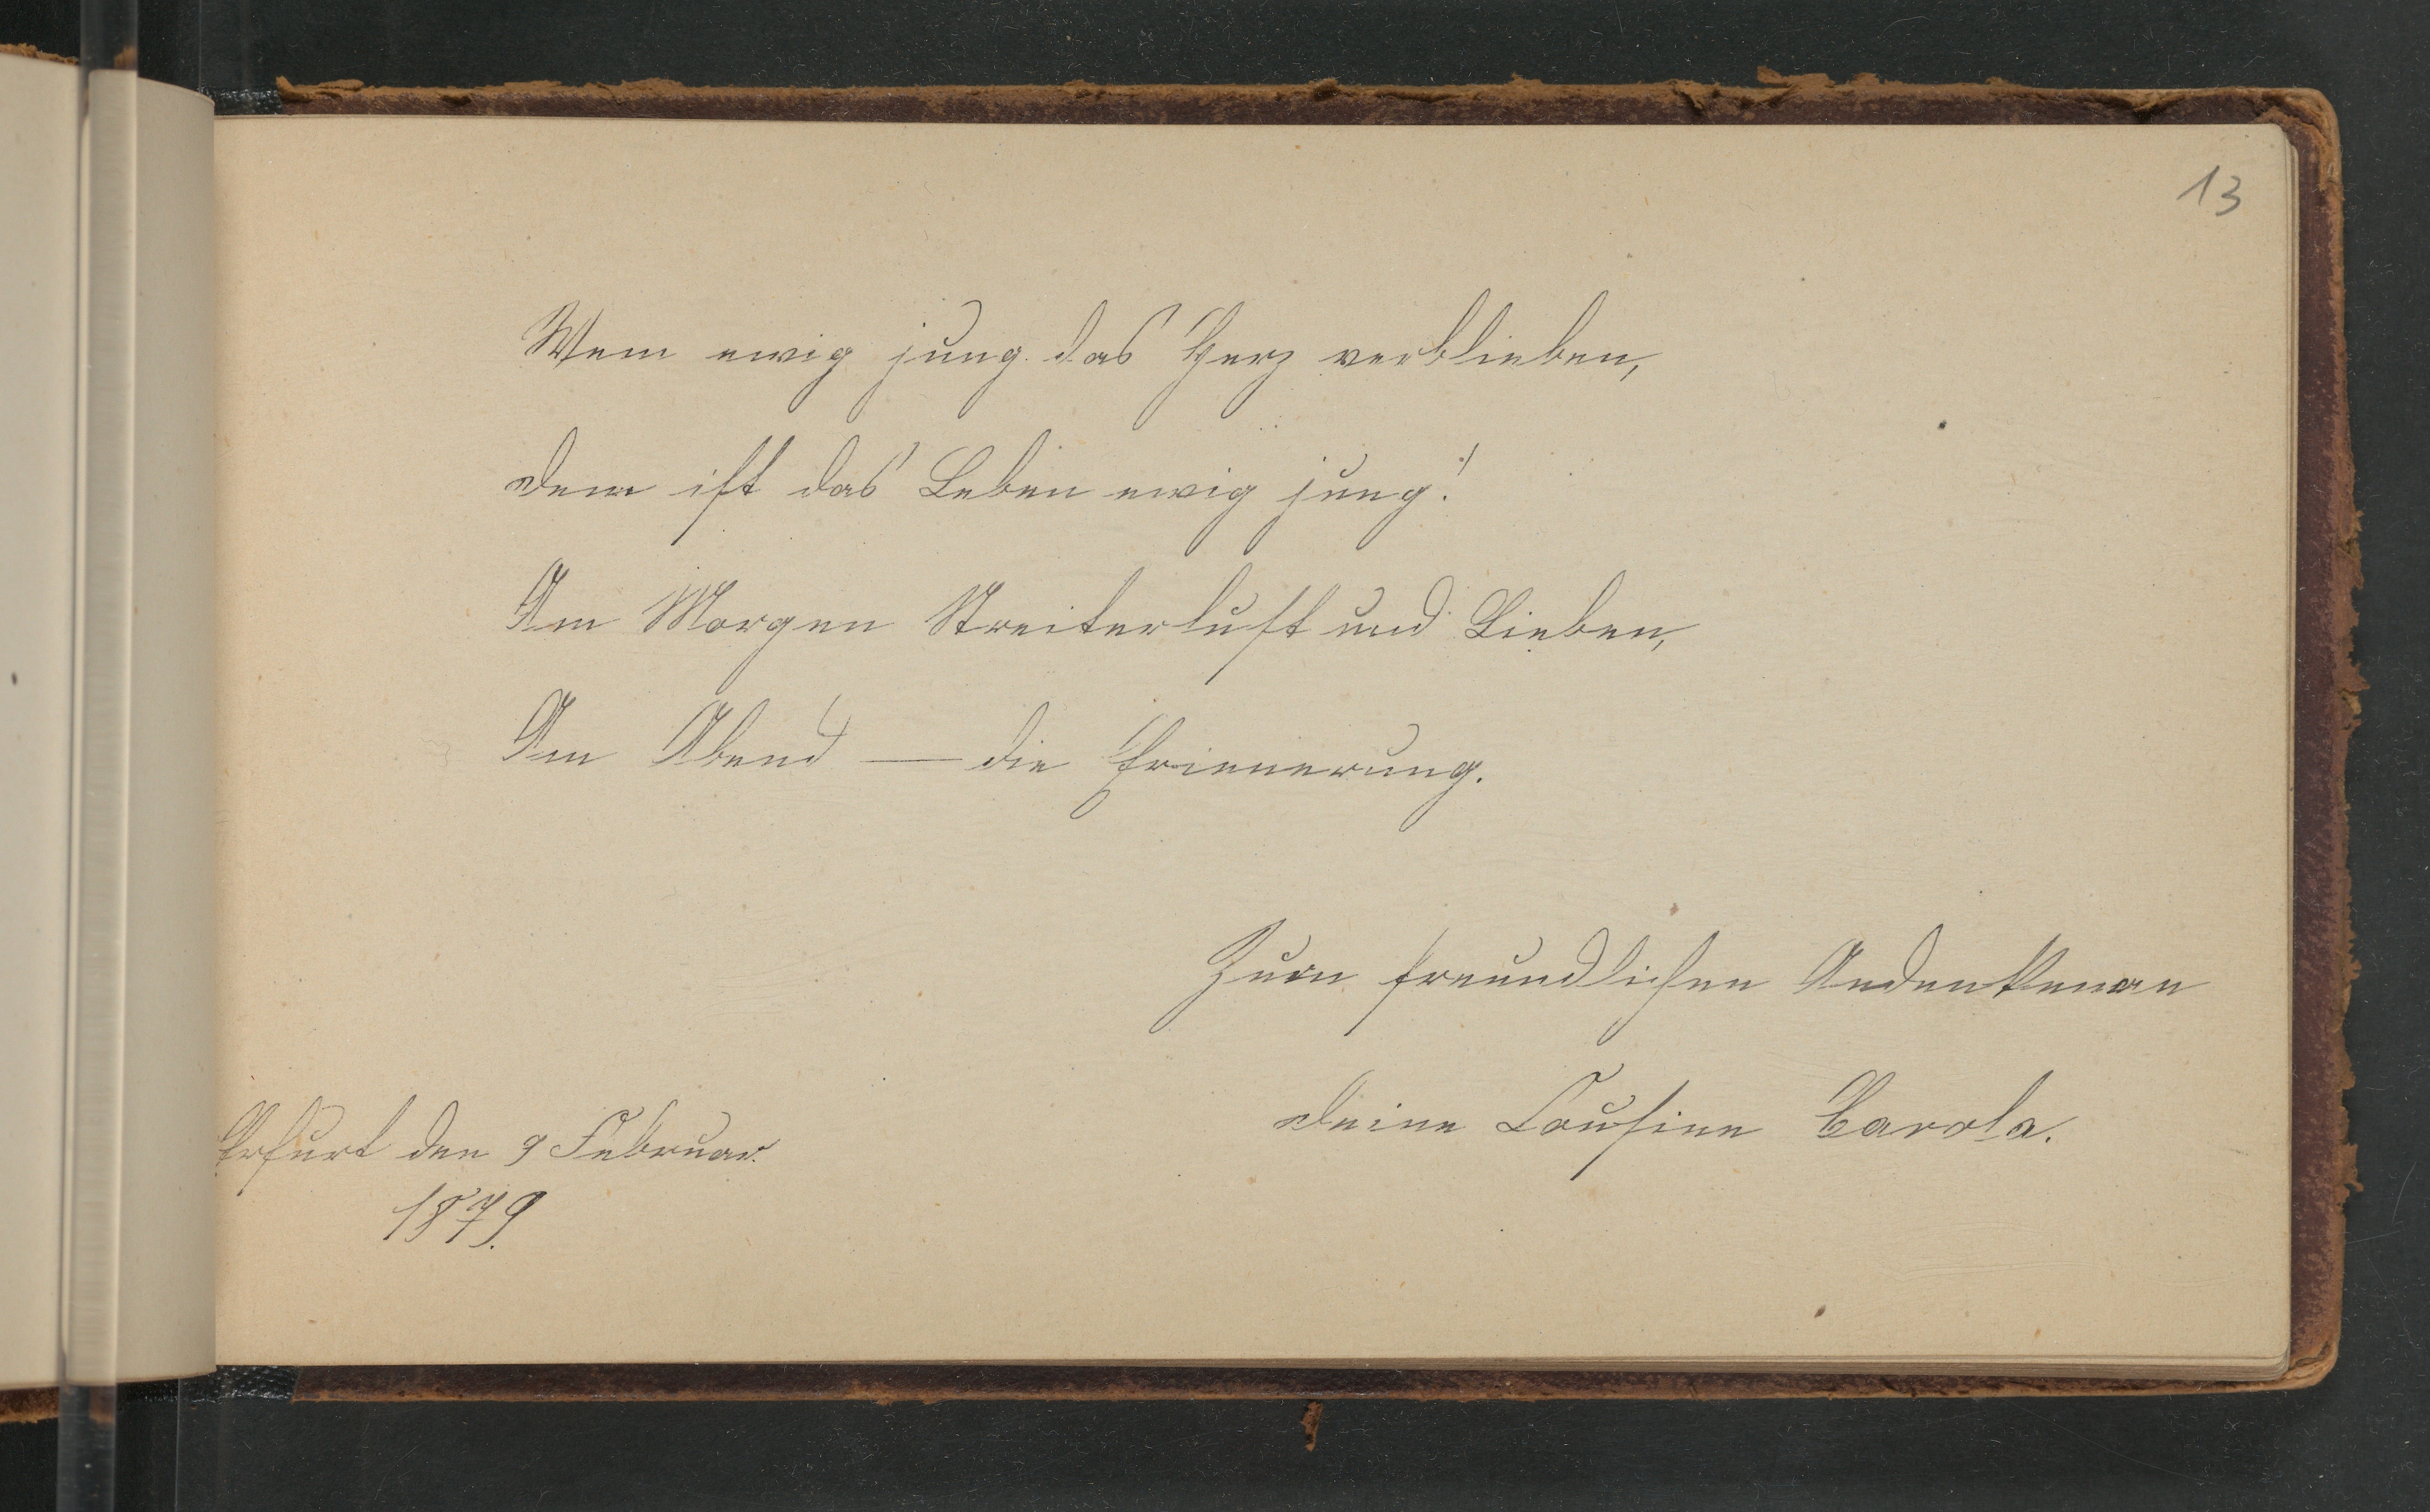 13
Wem ewig jung das Herz verblieben,
dem ist das Leben ewig jung!
Am Morgen Streiterlust und Lieben,
Am Abend — die Erinnerung.
Zum freundlichen Andenken an
deine Cousine Carola.
Erfurt den 9 Februar.
1879.